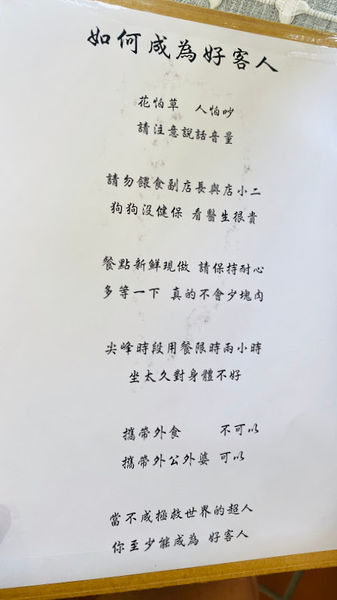 如何成為好客人
花怕草 人怕吵
請注意說話音量
請勿餵食副店長與店小二
狗狗沒健保 看醫生很貴
餐點新鮮現做 請保持耐心
多等一下 真的不會少塊肉
尖峰時段用餐限時兩小時
坐太久對身體不好
攜帶外食 不可以
攜帶外公外婆 可以
當不成拯救世界的超人
你至少能成為 好客人